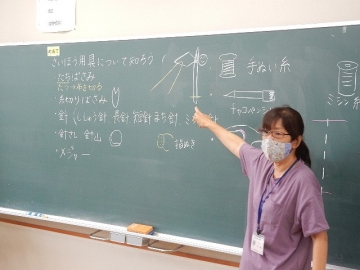 さいほう用具について知ろう
たちばさみ
手ぬい糸
・糸切りばさみ
チャコペンシル
ミシン糸
・針 ししゅう針 長針 短針 まち針 ミシン
・針さし 針山
指ぬき
・メジャー